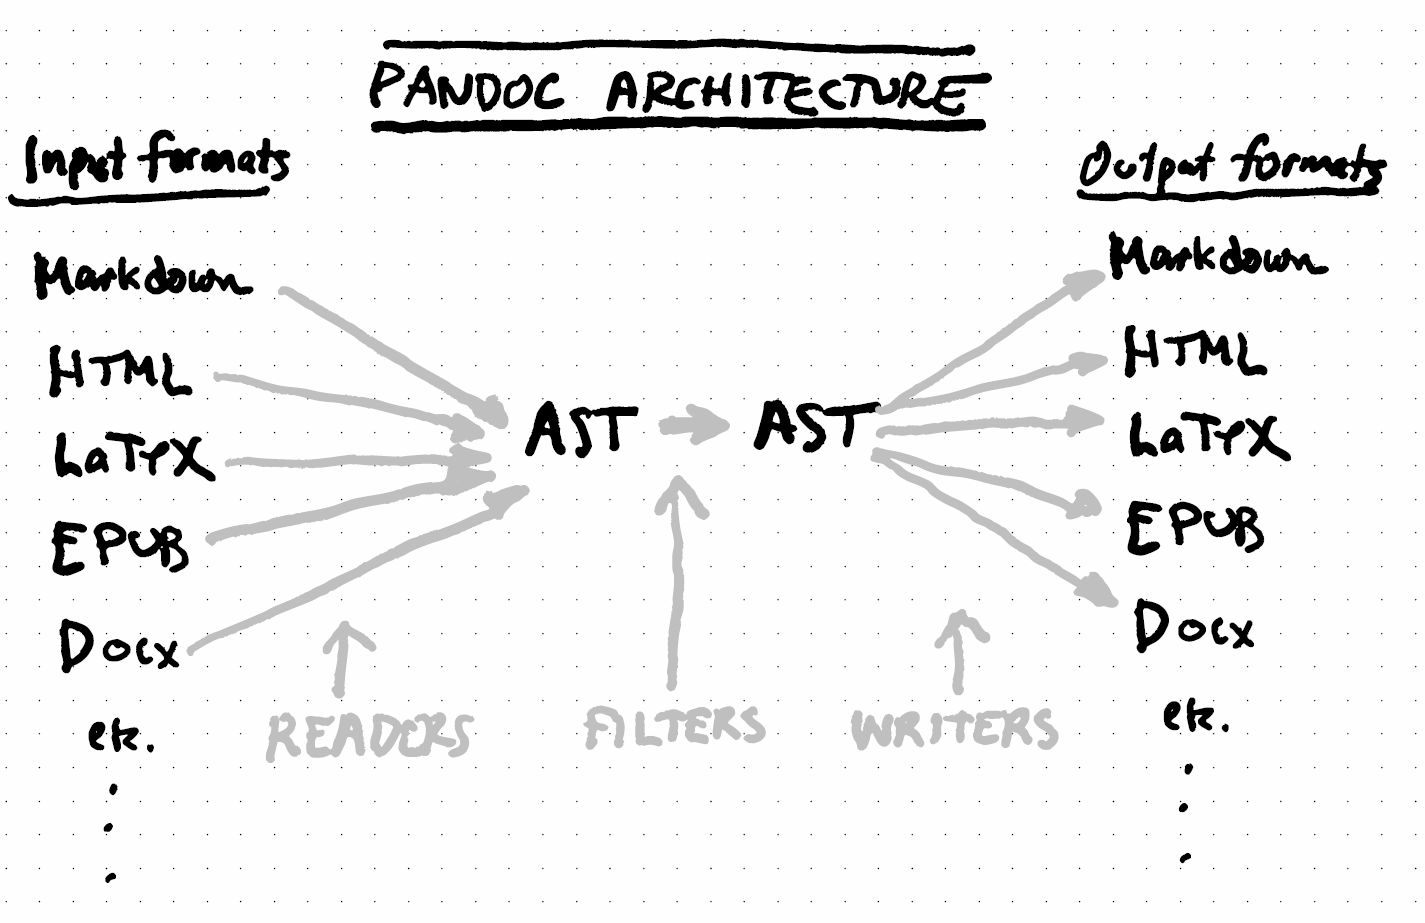 PANDOC ARCHITECTURE
Input formats
Markdown
HTML
LaTeX
EPUB
Docx
etc.
AST
AST
READERS
FILTERS
WRITERS
Output formats
Markdown
HTML
LaTeX
EPUB
Docx
etc.